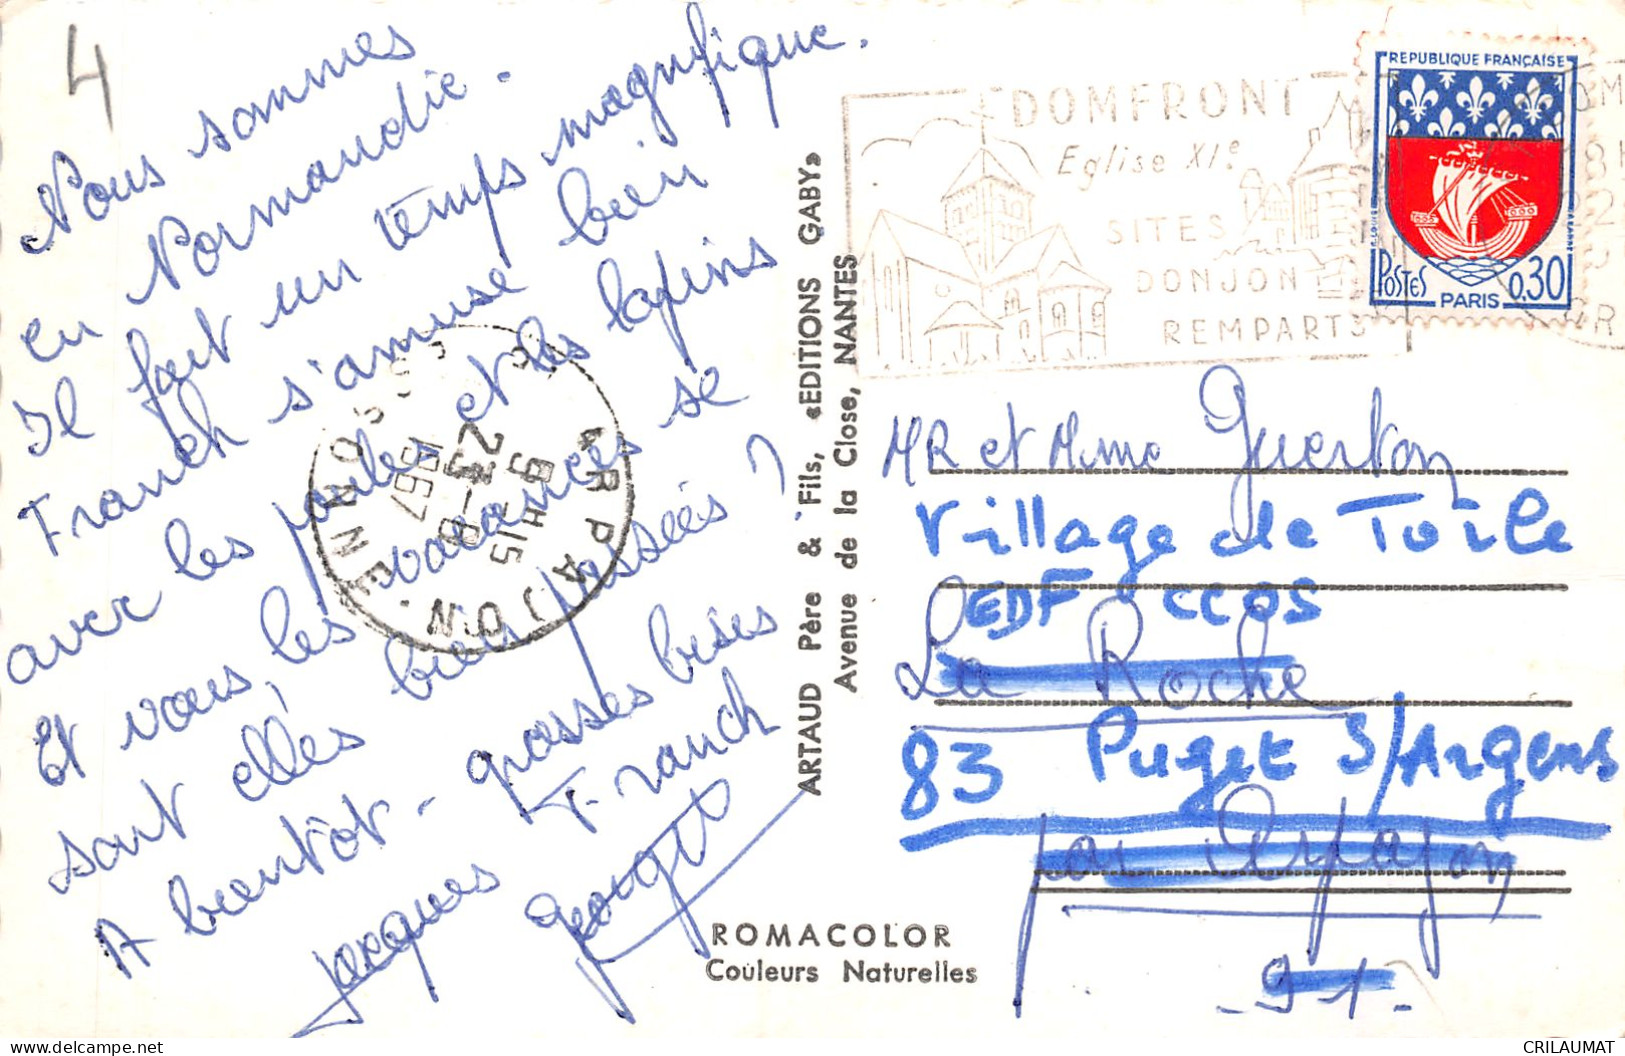 4
Nous sommes
en Normandie.
Il fait un temps magnifique.
Franck s'amuse bien
avec les poules et les lapins
Et vous, les vacances se
sont elles bien passées ?
A bientôt - grosses bises
Jacques Franck
Georgette
ARPAJON
ESSONNE
9H15
23-8
1967
ARTAUD Père & Fils, «EDITIONS GABY»
Avenue de la Close, NANTES
ROMACOLOR
Couleurs Naturelles
DOMFRONT
Eglise XIe
SITES
DONJON
REMPARTS
REPUBLIQUE FRANÇAISE
POSTES
PARIS
0,30
MR et Mme Guerton
Village de Toile
EDF CCOS
La Roche
83 Puget S/Argens
par Arpajon
- 91 -
CRILAUMAT